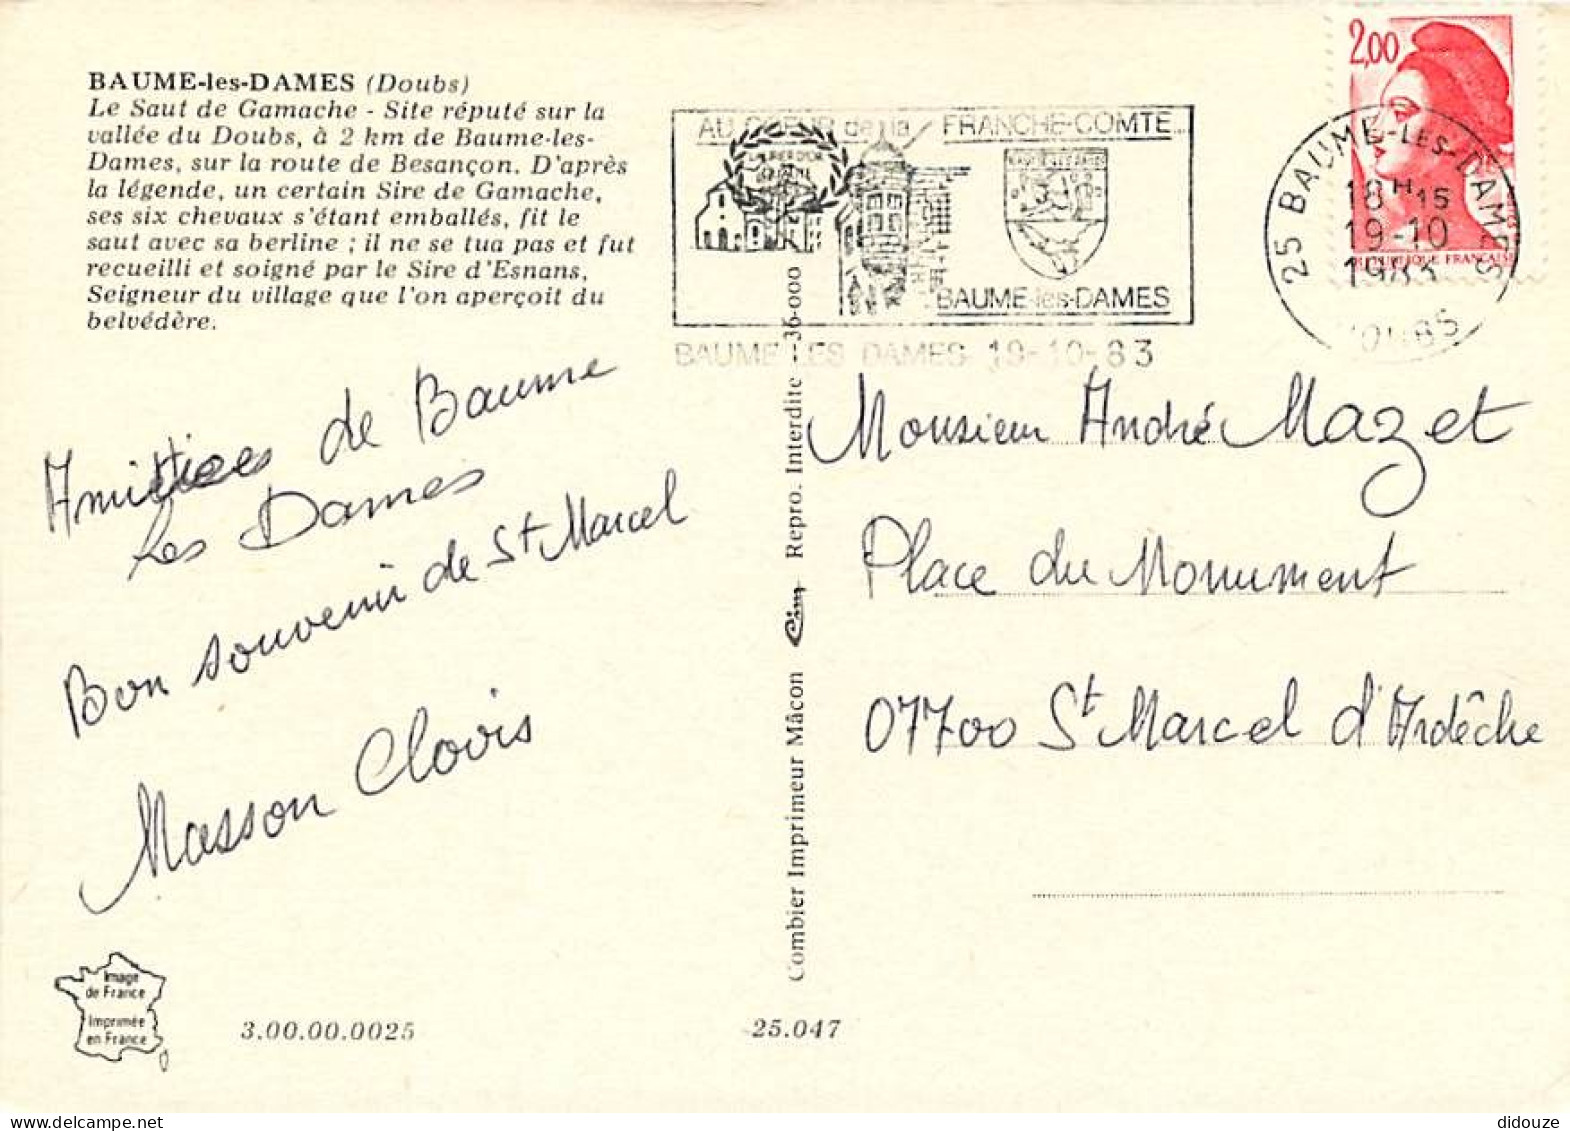 BAUME-les-DAMES (Doubs)
Le Saut de Gamache - Site réputé sur la
vallée du Doubs, à 2 km de Baume-les-
Dames, sur la route de Besançon. D'après
la légende, un certain Sire de Gamache,
ses six chevaux s'étant emballés, fit le
saut avec sa berline ; il ne se tua pas et fut
recueilli et soigné par le Sire d'Esnans,
Seigneur du village que l'on aperçoit du
belvédère.
AU COEUR de la FRANCHE-COMTE
BAUME-les-DAMES
BAUME LES DAMES 19-10-83
2,00
REPUBLIQUE FRANÇAISE
25 BAUME-LES-DAMES
18H15
19-10
1983
DOUBS
Amitiées de Baume
Les Dames
Bon souvenir de St Marcel
Masson Clovis
Combier Imprimeur Mâcon Cim Repro. Interdite - 36-000
Monsieur André Mazet
Place du Monument
07700 St Marcel d'Ardèche
Image
de France
Imprimée
en France
3.00.00.0025
25.047
didouze